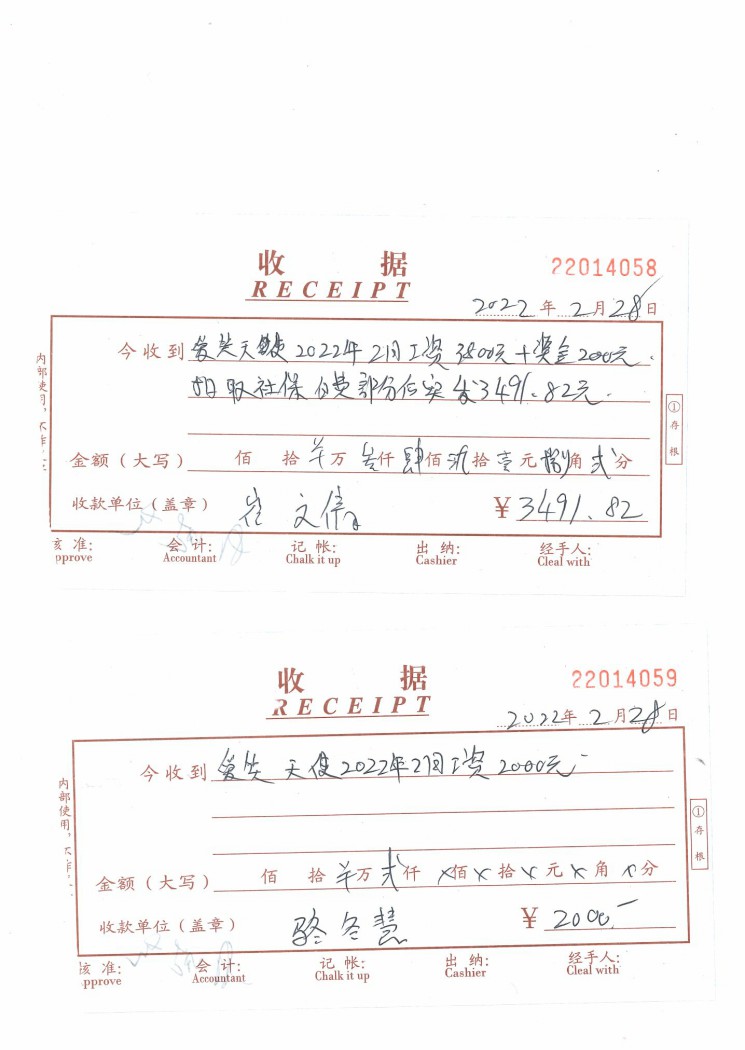 收 据
22014058
RECEIPT
2022 年 2 月 28 日
今收到 爱笑天使2022年2月工资3500元+奖金200元.
扣取社保自费部分后实发3491.82元.
金额(大写) 佰 拾 羊万 叁仟 肆佰 玖拾 壹元 捌角 贰分
收款单位(盖章) 崔文倩
¥3491.82
核 准:
会 计:
记 帐:
出 纳:
经手人:
pprove
Accountant
Chalk it up
Cashier
Cleal with
内部使用,不作
①存根
收 据
22014059
RECEIPT
2022年 2 月 28 日
今收到 爱笑天使2022年2月工资2000元
金额(大写) 佰 拾 羊万 贰仟 ×佰 × 拾 × 元 × 角 ×分
收款单位(盖章) 骆冬慧
¥ 2000.-
核 准:
会 计:
记 帐:
出 纳:
经手人:
pprove
Accountant
Chalk it up
Cashier
Cleal with
内部使用,不作
①存根